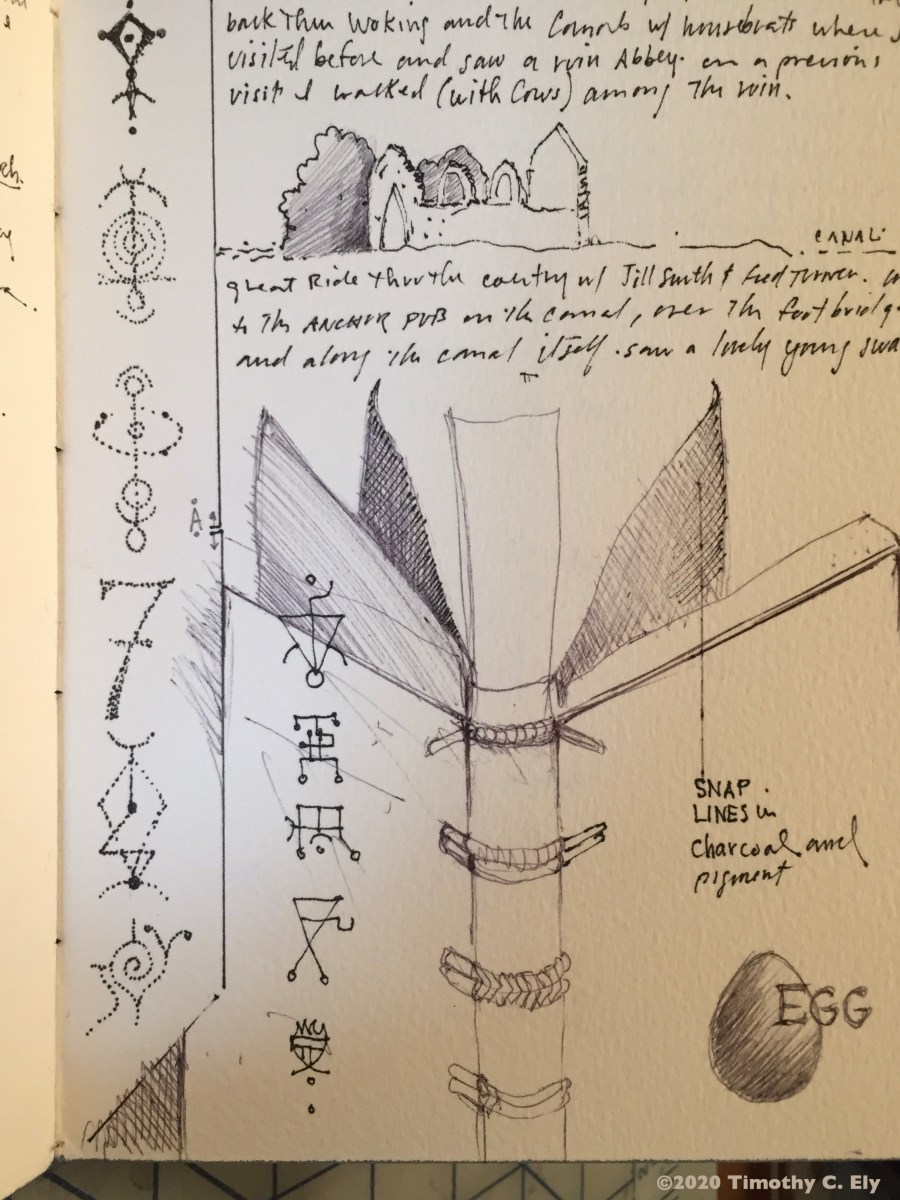 back thru Woking and the Canals w/ houseboats where I
visited before and saw a ruin Abbey. on a previous
visit I walked (with Cows) among the ruin.
CANAL
great Ride thru the country w/ Jill Smith & Fred Turner.
to the ANCHOR PUB on the canal, over the footbridge
and along the canal itself. saw a lovely young swa
A
SNAP.
LINES in
Charcoal and
pigment
EGG
©2020 Timothy C. Ely